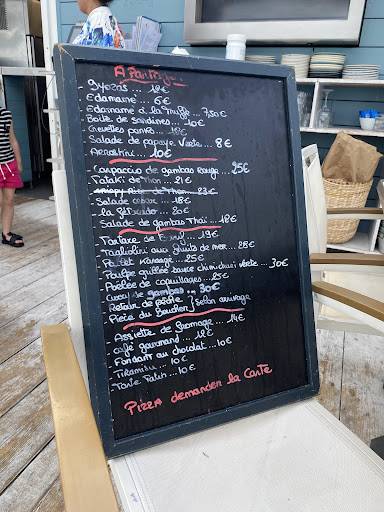 A Partager
- gyozas ... 18€
- Edamame ... 6€
- Edamame à la truffe ... 7,50€
- Boîte de sardines ... 10€
- Crevettes panko ... 18€
- Salade de papaye Verte ... 8€
- Arrostini ... 10€
- Carpaccio de gambas rouge ... 25€
- Tataki de Thon ... 21€
- crispy Rice de Thon ... 23€
- Salade césar ... 18€
- la ... 20€
- Salade de gambas Thaï ... 18€
- Tartare de Bœuf ... 19€
- Tagliolini aux fruits de mer ... 28€
- Poulet Karaage ... 25€
- Poulpe grillée sauce chimichuri verte ... 30€
- Poêlée de coquillages ... 25€
- Curry de gambas ... 30€
- Retour de pêche } Selon arrivage
- Pièce du Boucher
- Assiette de fromage ... 14€
- café gourmand ... 12€
- Fondant au chocolat ... 10€
- Tiramisu ... 10€
- Tarte Tatin ... 10€
Pizza demander la Carte